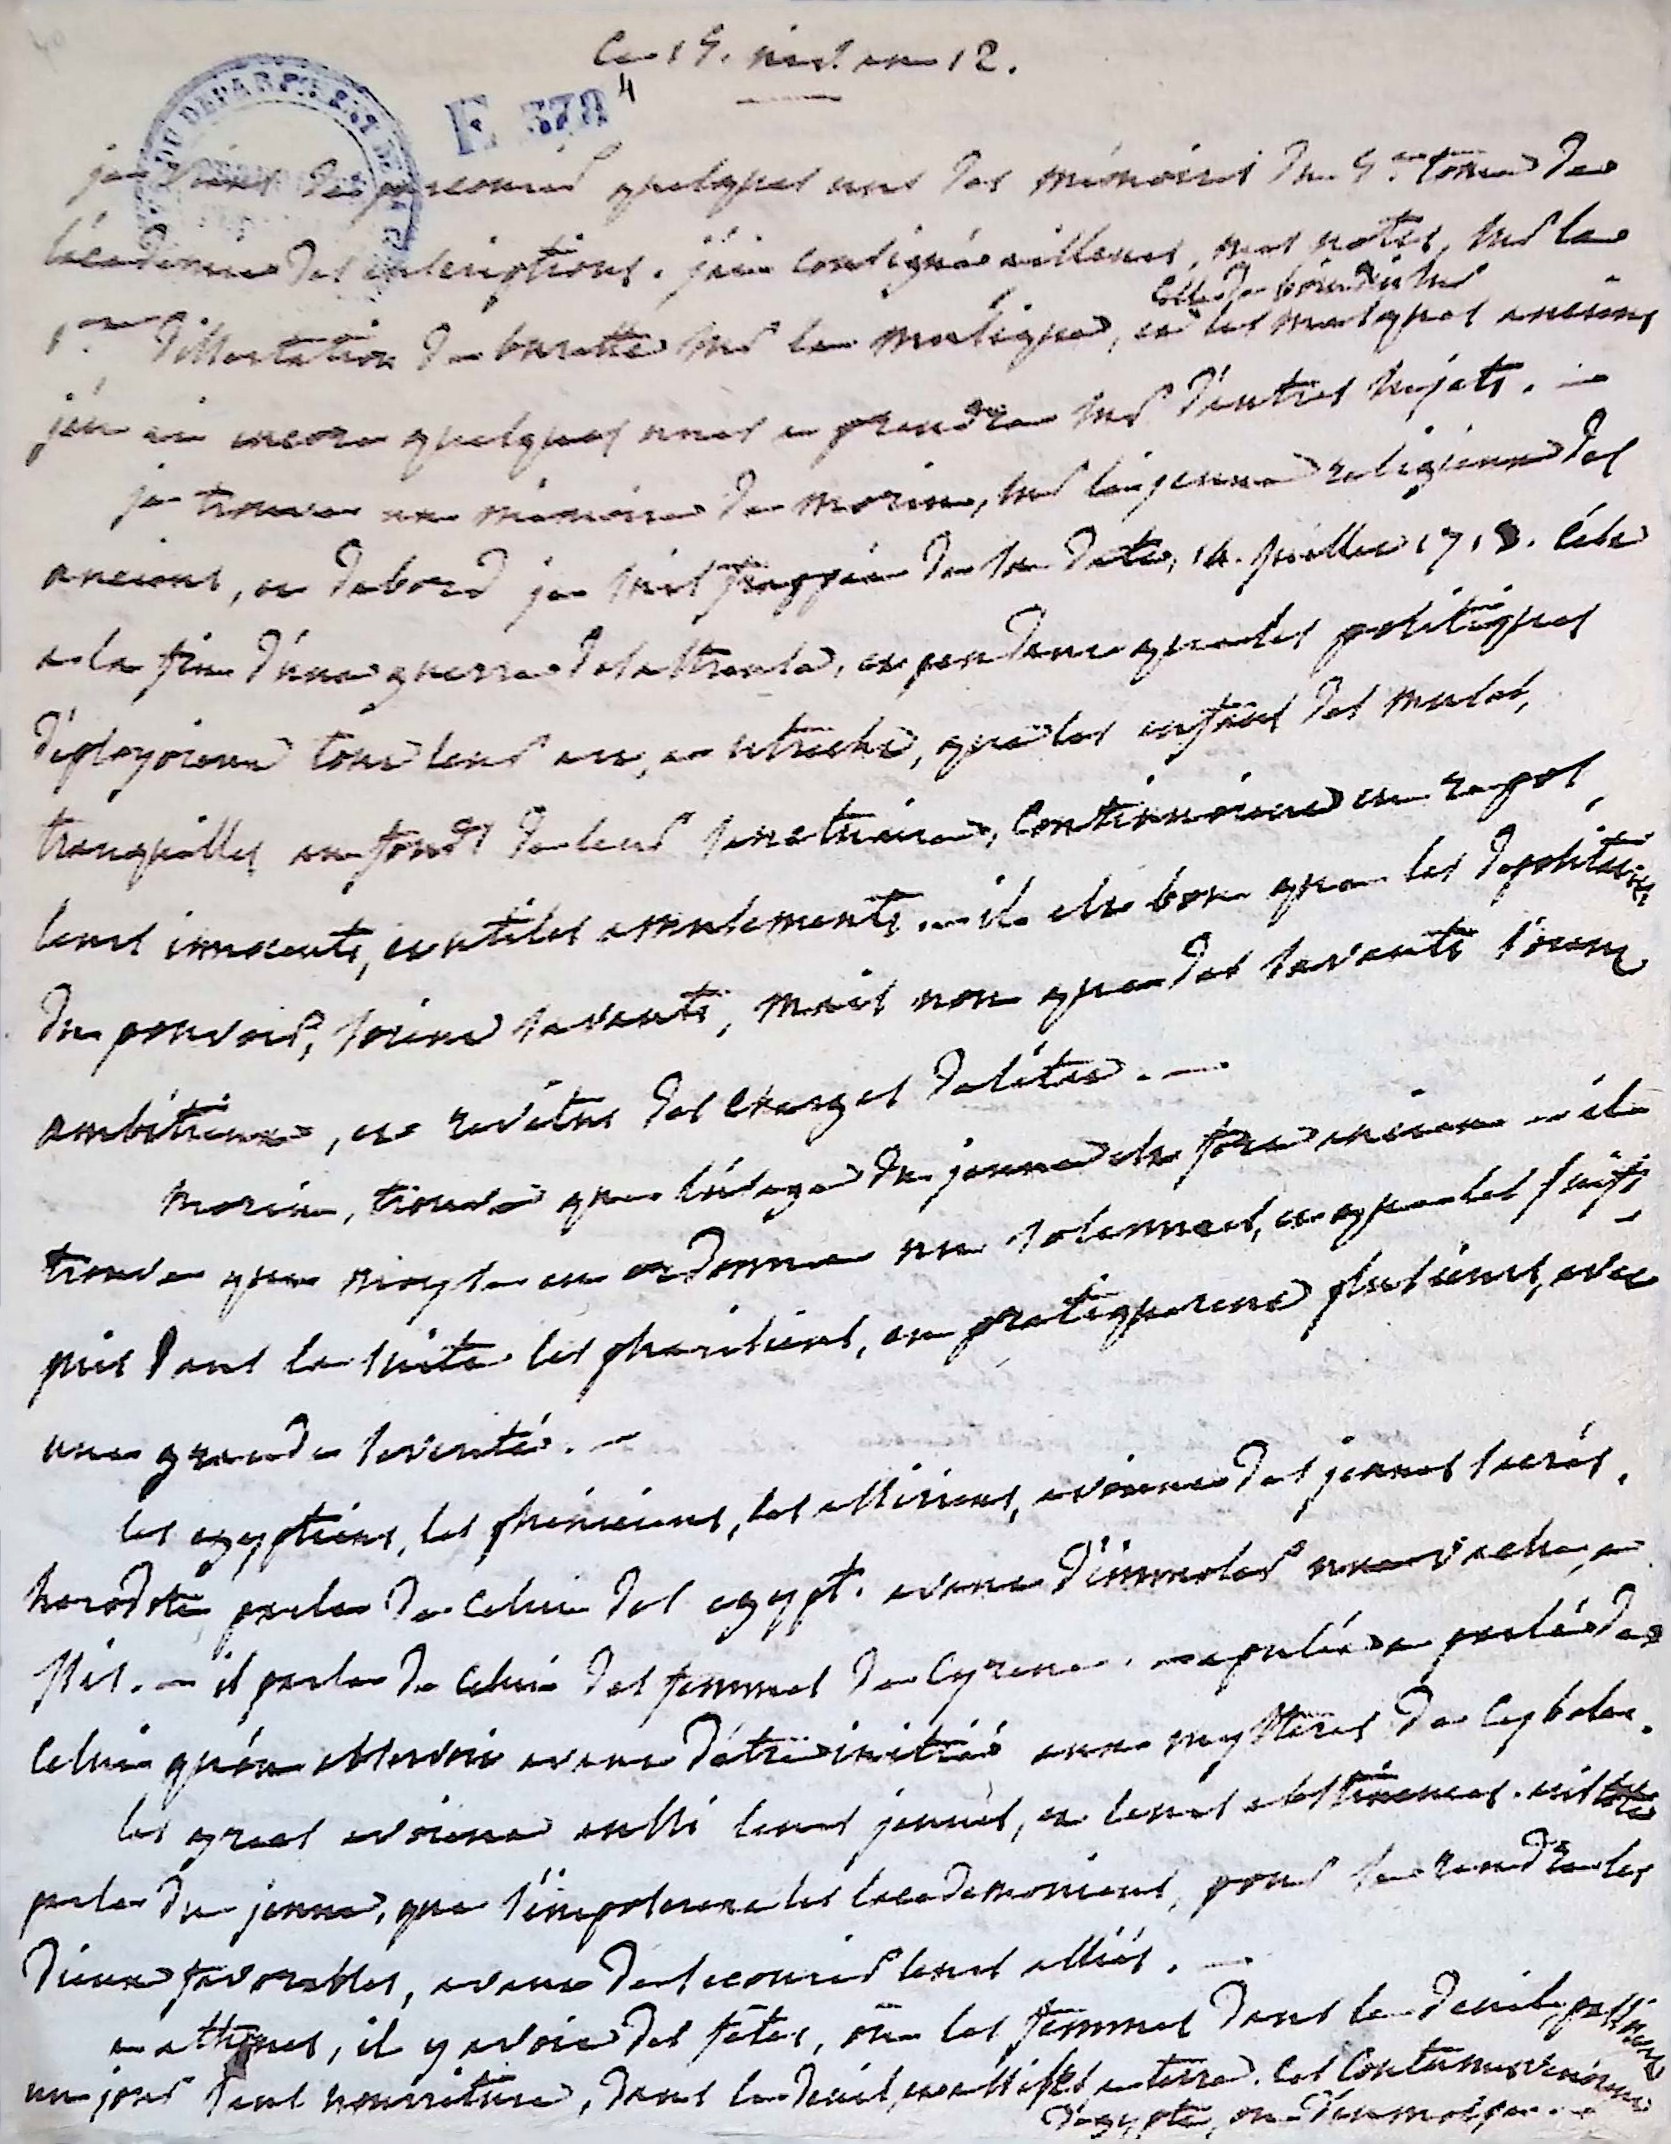 Ce 15. niv. an 12.
E 378 4
je viens de parcourir quelques uns des mémoires du 4.me tome de
l'academie des inscriptions. j'ai consigné ailleurs, mes notes, sur la
1.re dissertation de burette sur la musique, et celle de boindin sur les masques anciens
j'en ai encore quelques unes a prendre sur d'autres sujets. —
je trouve un mémoire de morin, sur le jeune religieux des
anciens, et dabord je suis frappé de sa date, 14. juillet 1713. c'est
a la fin d'une guerre desastreuse, et pendant que les politiques
deployoient tout leur art, a utrecht, que les enfans des muses,
tranquilles au fond de leur sanctuaire, continuoient en repos,
leurs innocents, et utiles amusements. — il est bon que les depositaires
du pouvoir, soient savants, mais non que des savants soient
ambitieux, et revêtus des charges de l'état. —
morin, trouve que l'usage du jeune est fort ancien — il
trouve que moyse en ordonne un solennel, et que les juifs,
puis dans la suite les pharisiens, en pratiquerent plusieurs, avec
une grande severité. —
les egyptiens, les pheniciens, les assiriens, avoient des jeunes sacrés.
herodote, parle de celui des egypt. avant d'immoler une vache, a
isis. — il parle de celui des femmes de Cyrene. — apulée a parlé de
celui qu'on observoit avant d'être initié aux mystères de Cybele.
les grecs avoient aussi leurs jeunes, et leurs abstinences. aristote
parle du jeune, que s'imposerent les lacedemoniens, pour se rendre les
dieux favorables, avant de secourir leurs alliés. —
a athenes, il y avoit des fêtes, où les femmes dans le deuil passoient
un jour sans nourriture, dans le deuil, assises a terre. ces coutumes venoient
d'egypte,